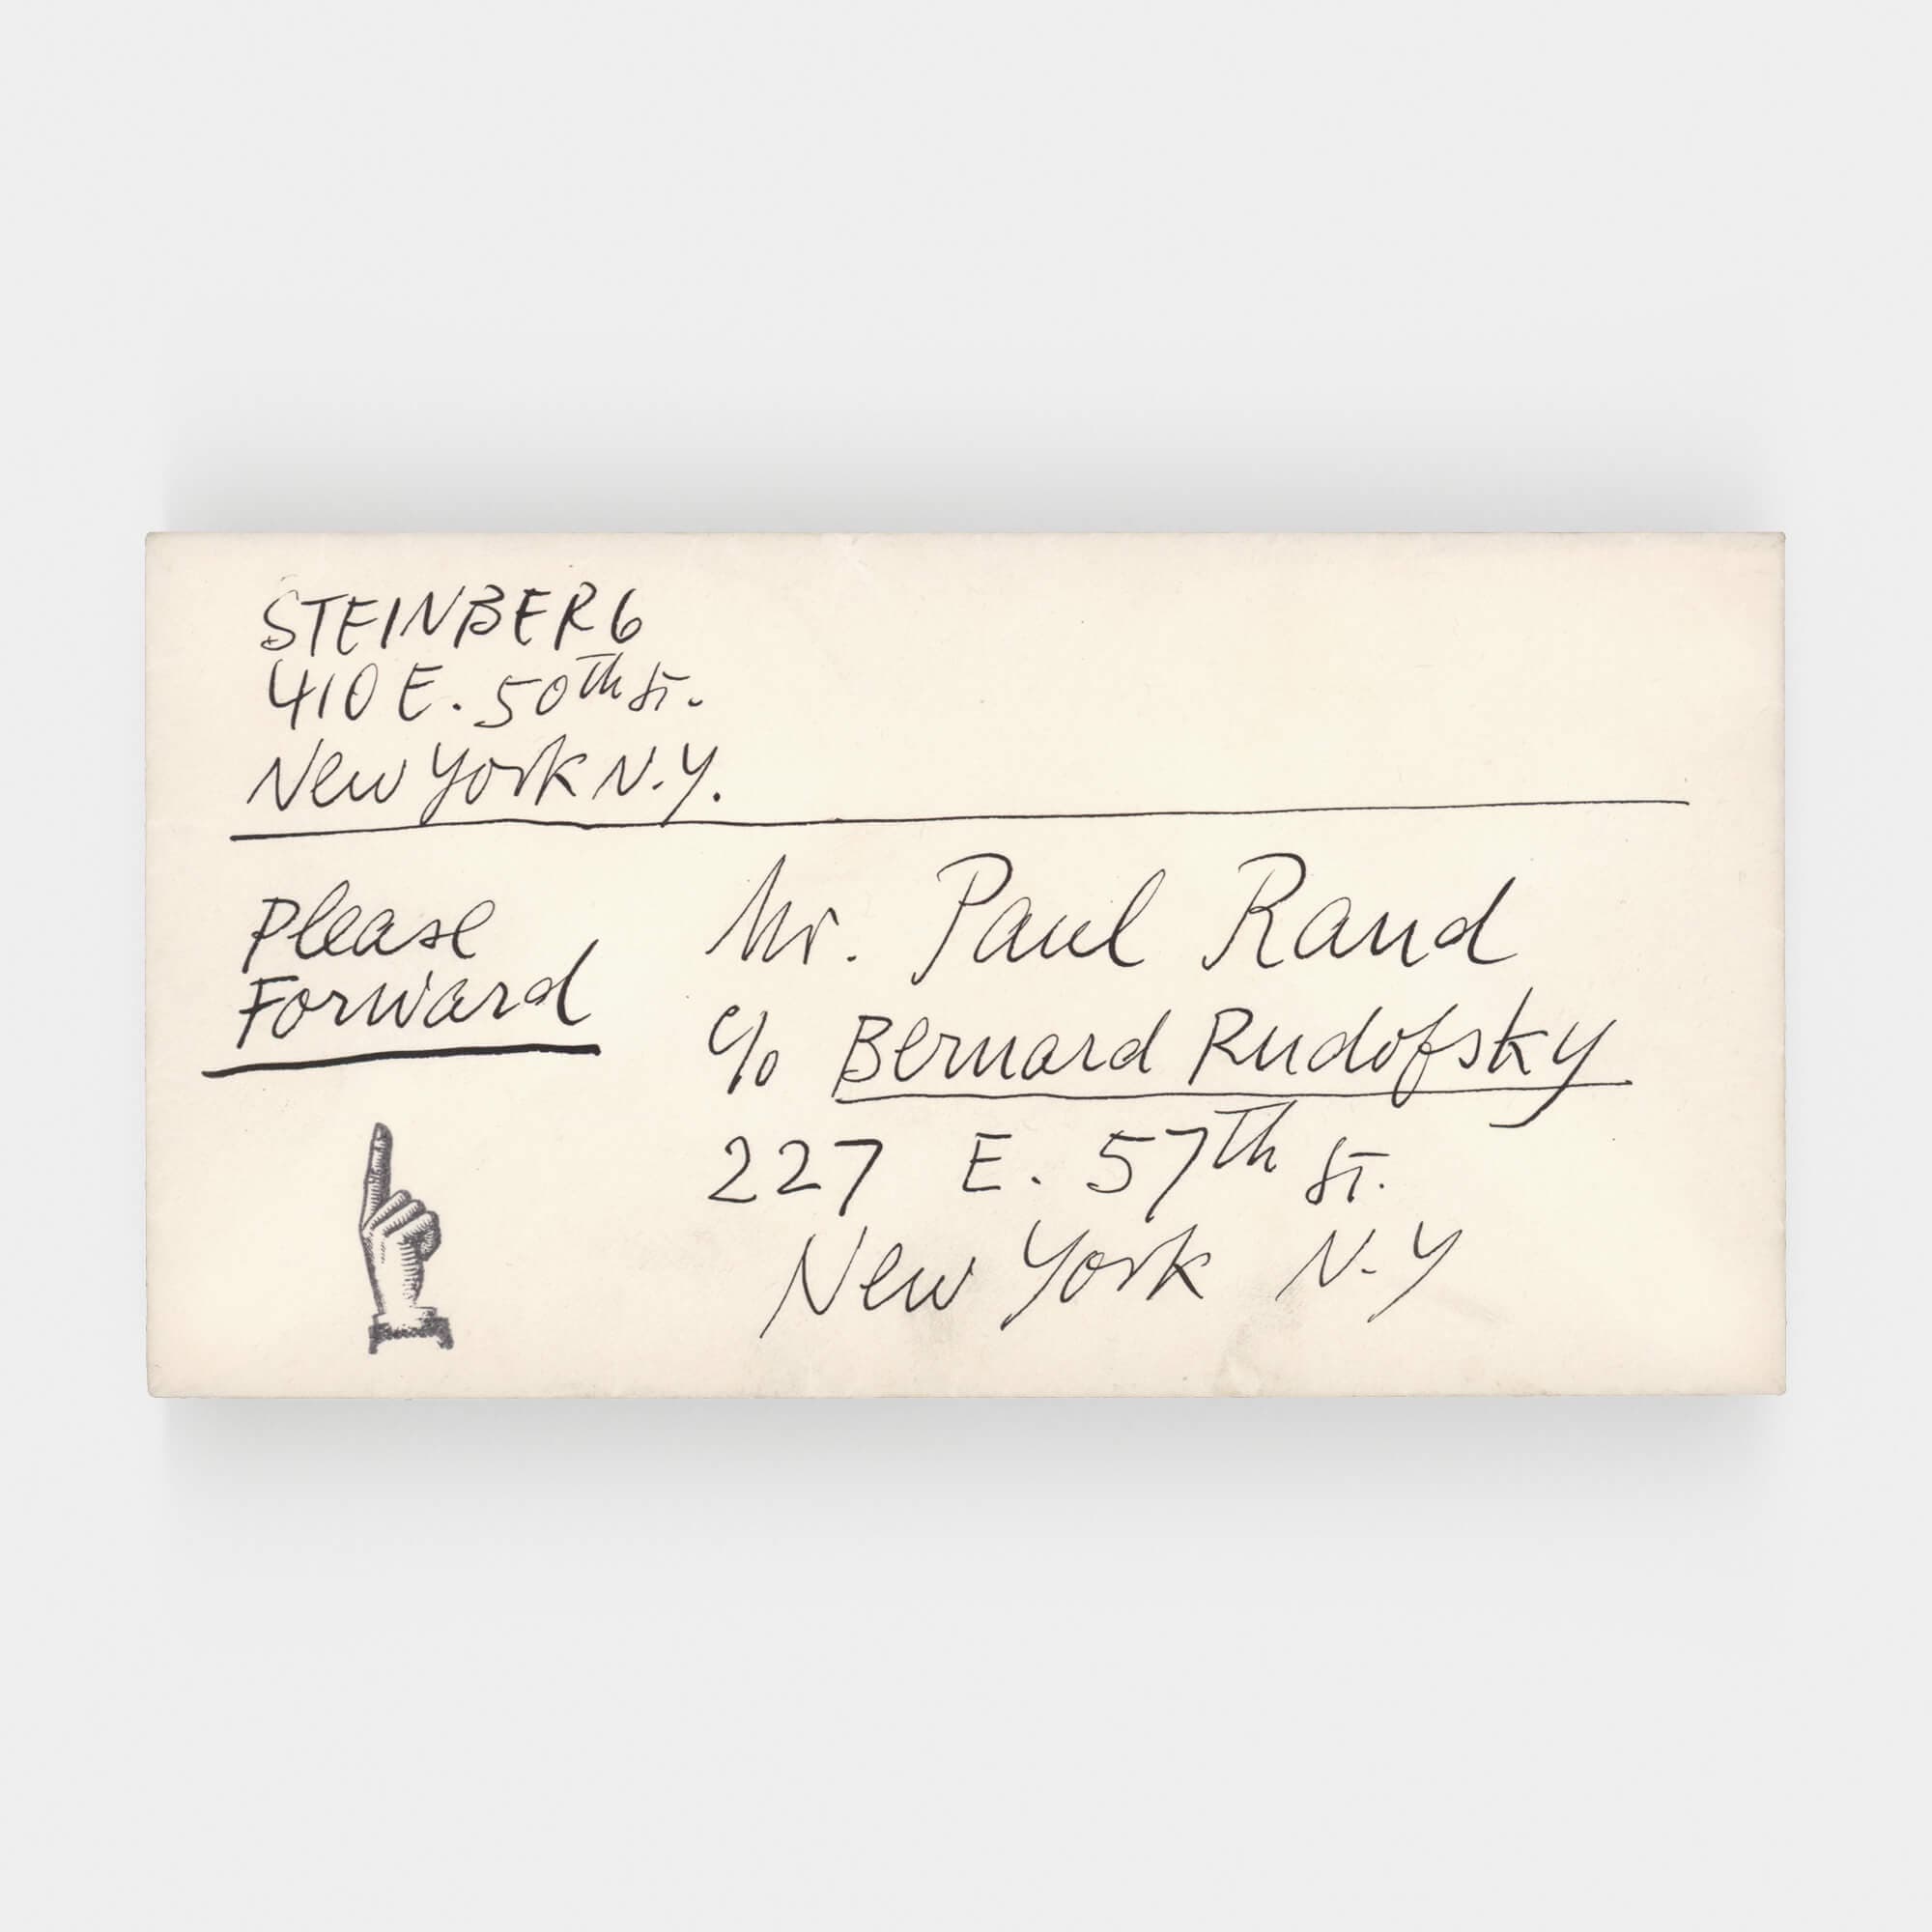 STEINBERG
410 E. 50th St.
New York N.Y.
Please
Forward
Mr. Paul Rand
c/o Bernard Rudofsky
227 E. 57th St.
New York N.Y